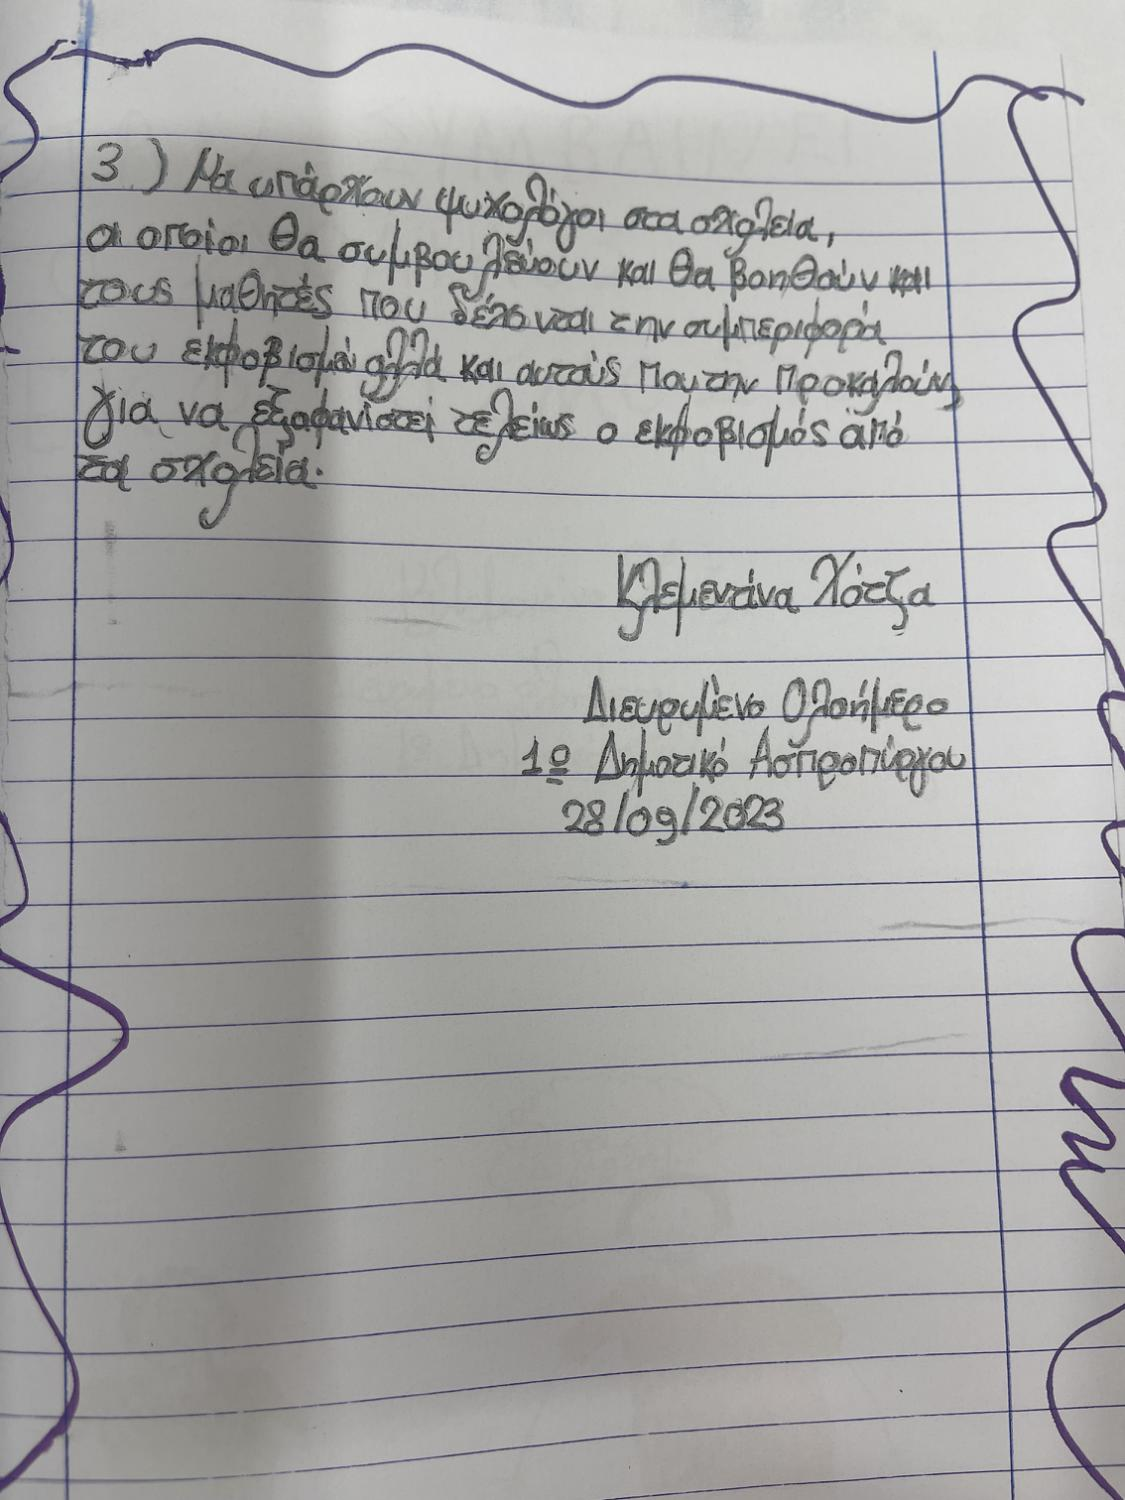 3) Να υπάρχουν ψυχολόγοι στα σχολεία,
οι οποίοι θα συμβουλεύουν και θα βοηθούν και
τους μαθητές που δέχονται την συμπεριφορά
του εκφοβισμού αλλά και αυτούς που την προκαλούν,
για να εξαφανιστεί τελείως ο εκφοβισμός από
τα σχολεία.
Κλεμεντίνα Χότζα
Διευρυμένο Ολοήμερο
1º Δημοτικό Ασπροπύργου
28/09/2023